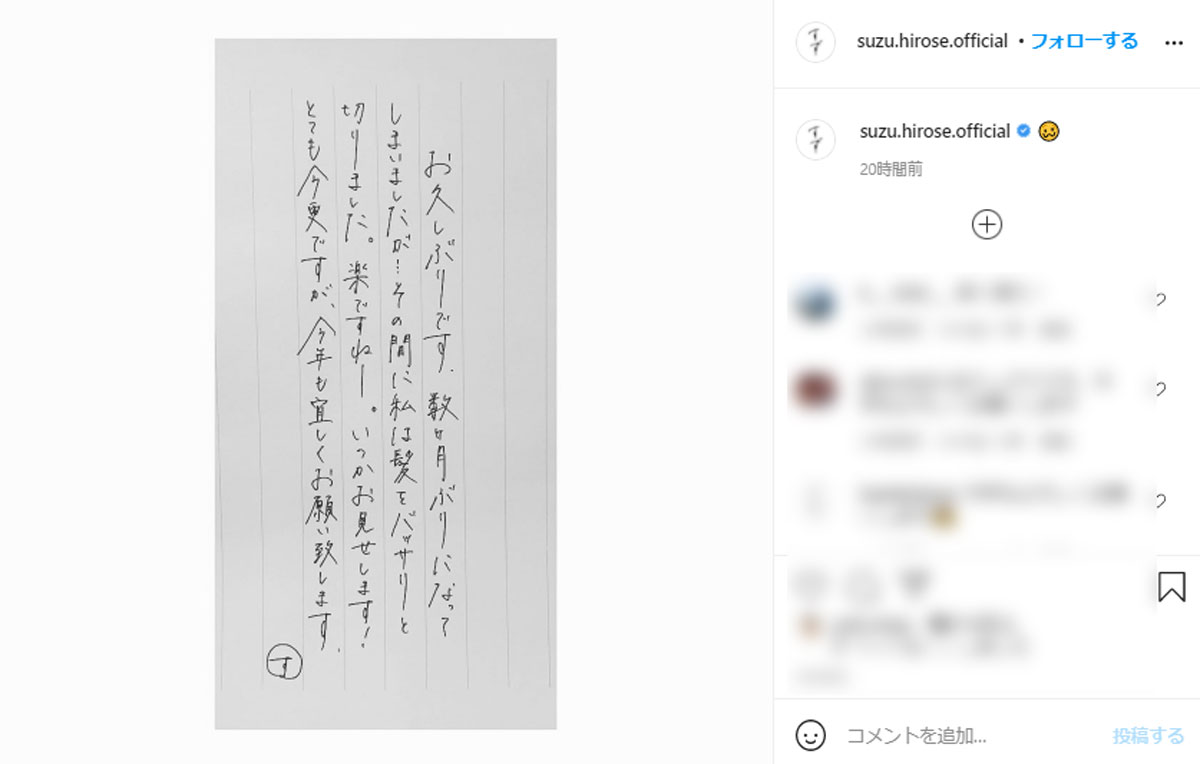 お久しぶりです. 数ヶ月ぶりになって
しまいましたが…その間に私は髪をバッサリーと
切りました。楽ですねー。いつかお見せします!
とても今更ですが、今年も宜しくお願い致します.
す
suzu.hirose.official • フォローする
suzu.hirose.official
20時間前
コメントを追加...
投稿する